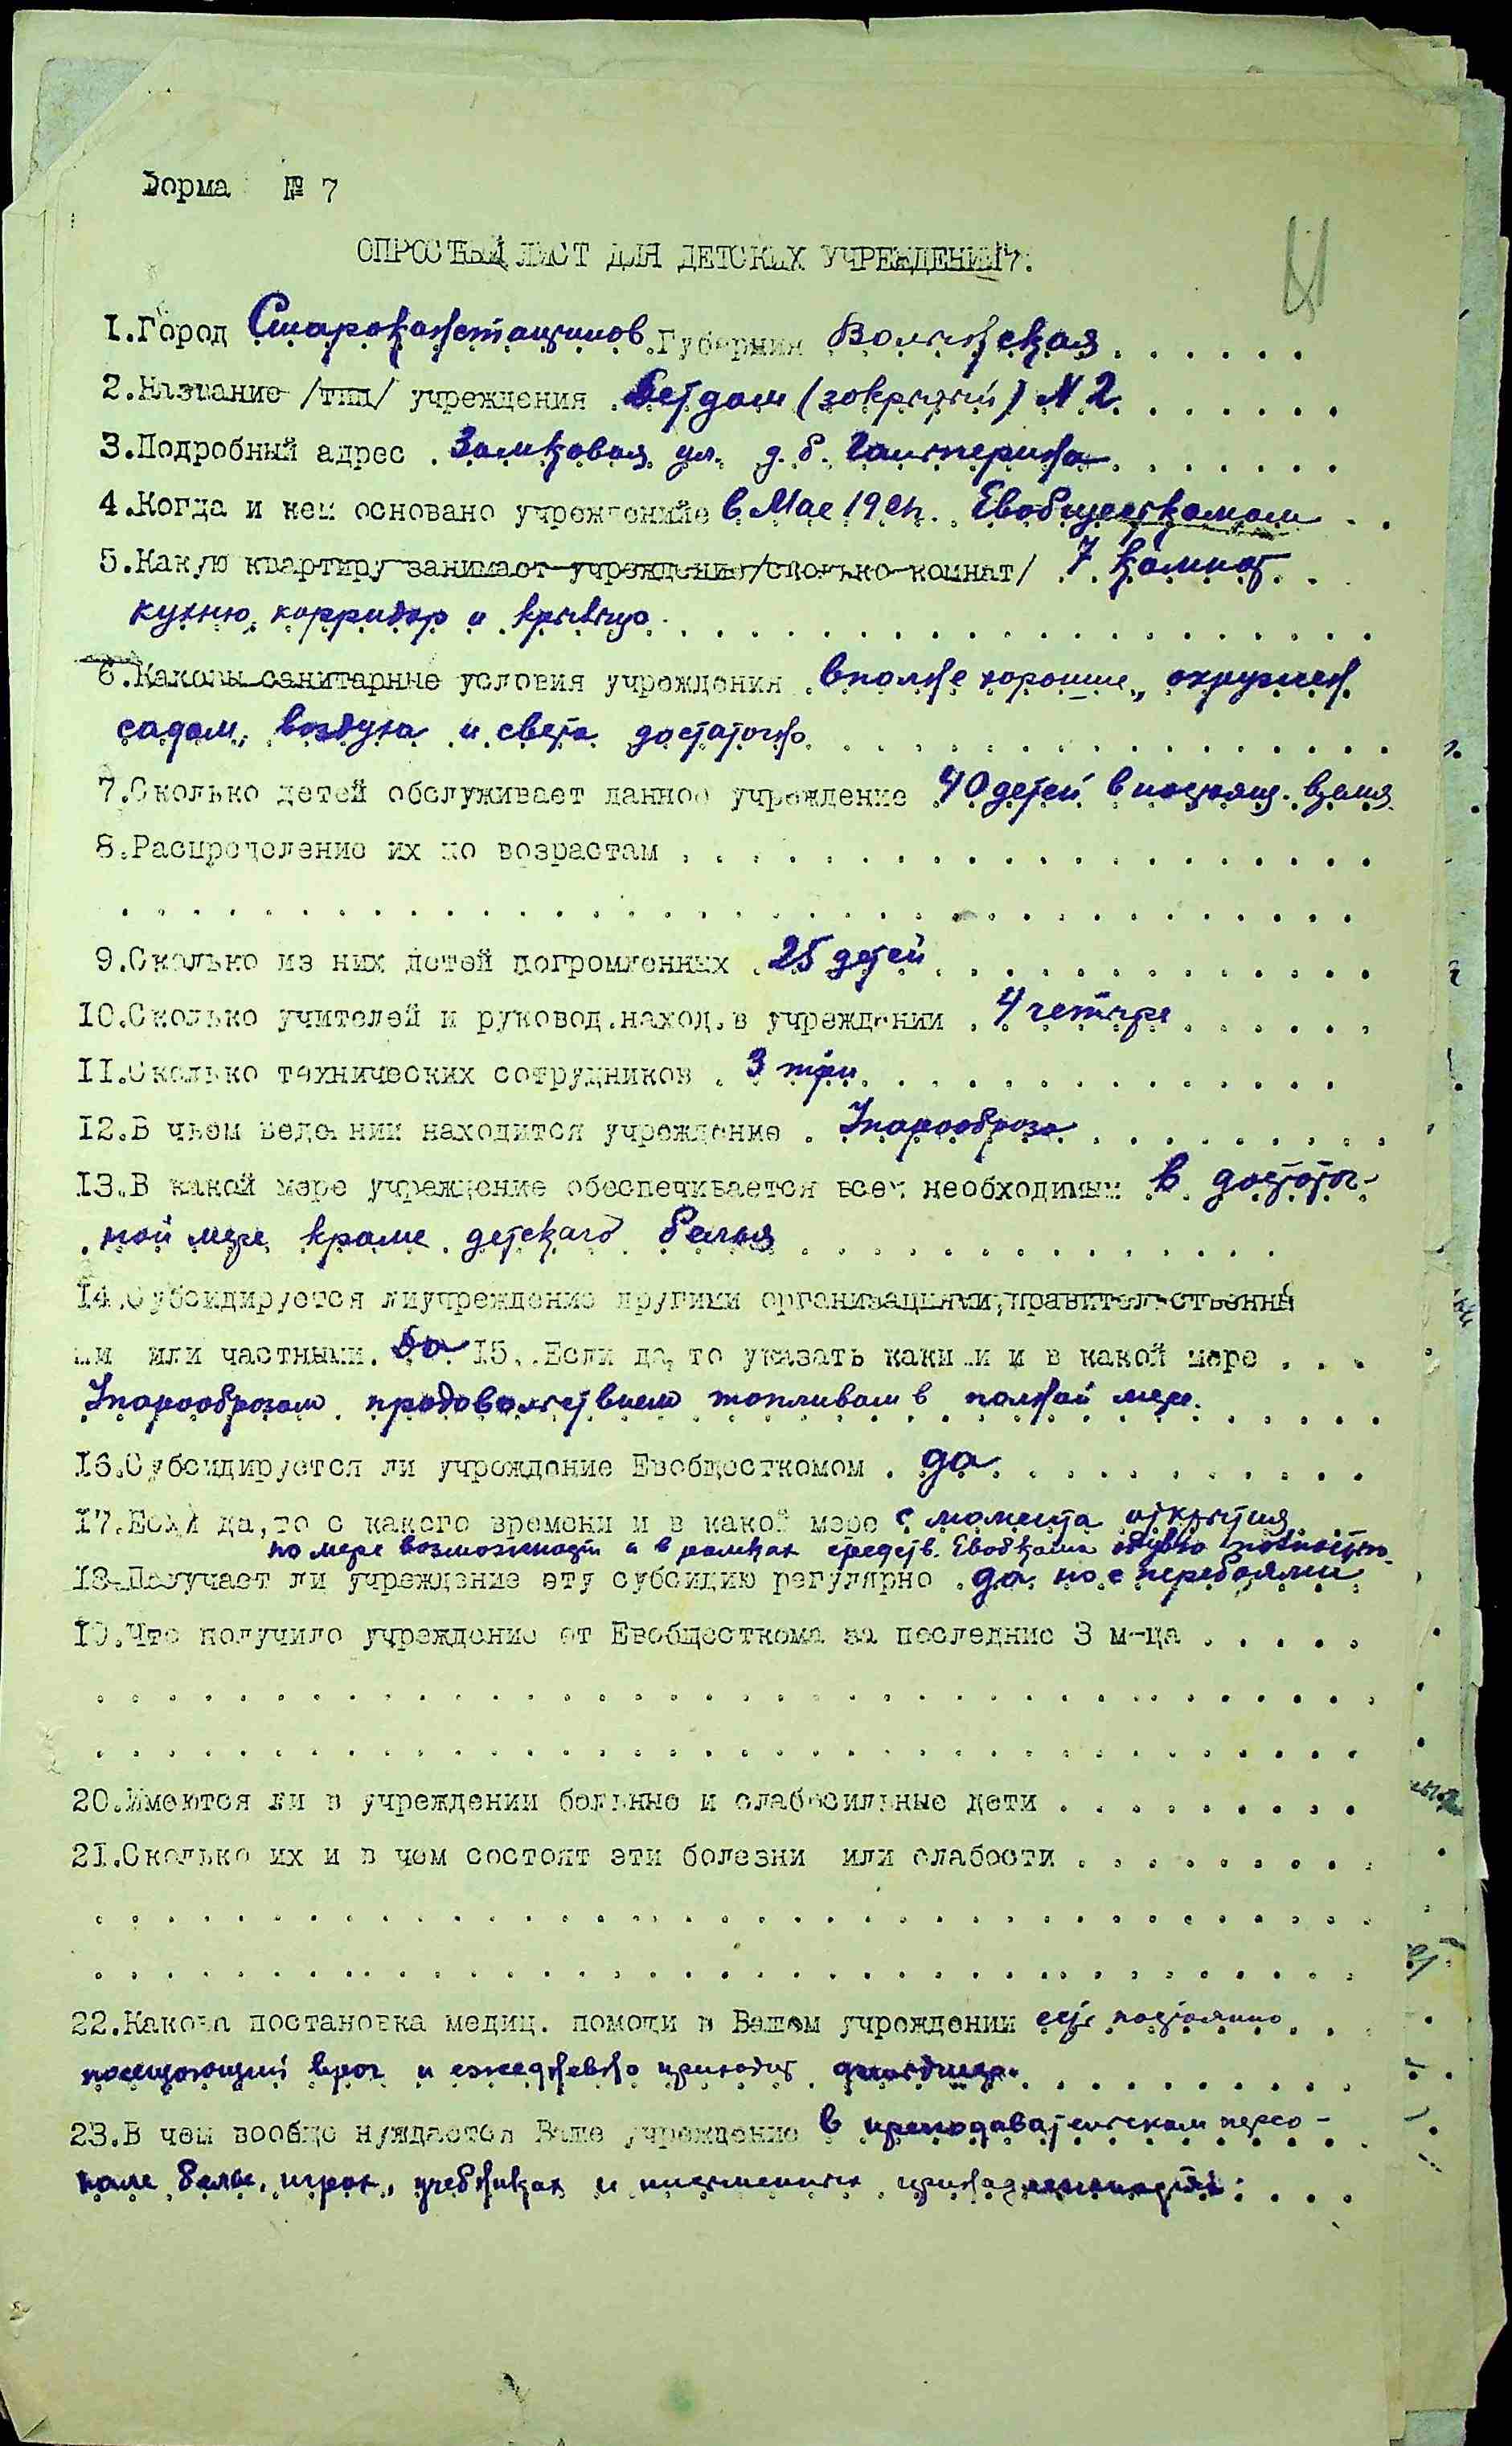 Форма № 7
ОПРОСНЫЙ ЛИСТ ДЛЯ ДЕТСКИХ УЧРЕЖДЕНИЙ.
1.Город Староконстантинов Губерния Волынская . . . . . .
2.Название /тип/ учреждения Детдом (закрытый) N 2 . . . . . .
3.Подробный адрес . Замковая ул. д. б. . . . . . .
4.Когда и кем основано учреждение в Мае 192 Евобщесткомом . .
5.Какую квартиру занимает учреждение/сколько комнат/ 7 комнат . .
кухню, корридор и крыльцо . . . . . . . . . . . . . . . . . . . .
6.Каковы санитарные условия учреждения . вполне хорошие, окружен
садом, воздуха и света достаточно . . . . . . . . . . . . . . . .
7.Сколько детей обслуживает данное учреждение 40 детей в настоящ. время
8.Распределение их по возрастам . . . . . . . . . . . . . . . . . . .
. . . . . . . . . . . . . . . . . . . . . . . . . . . . . . . . . .
9.Сколько из них детей погромленных . 25 детей . . . . . . . . . . . .
10.Сколько учителей и руковод.наход.в учреждении . 4 четыре . . . . . .
11.Сколько технических сотрудников . 3 три . . . . . . . . . . . . . .
12.В чьем ведении находится учреждение . Упарообраза . . . . . . . . .
13.В какой мере учреждение обеспечивается всем необходимым в достаточ-
ной мере кроме детского белья . . . . . . . . . . . . . . .
14.Субсидируется лиучреждение другими организациями,правительственны
ми или частными. Да 15..Если да, то указать какими и в какой мере . . .
Упарообразом продовольствием топливом в полной мере. . . . . . .
16.Субсидируется ли учреждение Евобщесткомом . да . . . . . . . . . . .
17.Если да,то с какого времени и в какой мере с момента открытия
по мере возможности и в рамках средств. Евобкома
18.Получает ли учреждение эту субсидию регулярно . да но с перебоями
19.Что получило учреждение от Евобщесткома за последние 3 м-ца . . . . .
. . . . . . . . . . . . . . . . . . . . . . . . . . . . . . . . . .
. . . . . . . . . . . . . . . . . . . . . . . . . . . . . . . . . .
20.Имеются ли в учреждении больные и слабосильные дети . . . . . . . . .
21.Сколько их и в чем состоят эти болезни или слабости . . . . . . . . .
. . . . . . . . . . . . . . . . . . . . . . . . . . . . . . . . . .
. . . . . . . . . . . . . . . . . . . . . . . . . . . . . . . . . .
22.Какова постановка медиц. помощи в Вашем учреждении есть постоянно . .
посещающий врач и ежедневно приходит . . . . . . . . . .
23.В чем вообще нуждается Ваше учреждение в преподавательском персо-
нале белье, игрок, учебниках и письменных принадлежностях . . . .